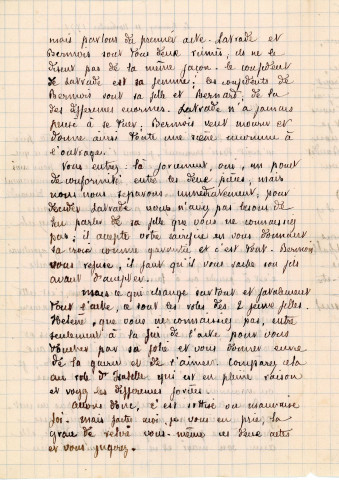 mais parlons du premier acte. Latrade et
Bermois sont tous deux ruinés; ils ne le
disent pas de la même façon. le confident
de Latrade est sa femme; les confidents de
Bermois sont sa fille et Bernard; de là
des différences énormes. Latrade n'a jamais
pensé à se tuer. Bermois veut mourir et
donne ainsi toute une scène inconnue à
l'outrage.
Vous entrez là forcément, oui, un point
de conformité entre les deux pièces, mais
nous nous séparons immédiatement, pour
décider Latrade nous n'avez pas besoin de
lui parler de sa fille que vous ne connaissez
pas; il accepte votre sacrifice en vous donnant
sa croix comme garantie et c'est tout. Bermois
vous refuse, il faut qu'il vous sache son fils
avant d'accepter.
mais ce qui change surtout et totalement
tout l'acte, ce sont les rôles des 2 jeunes filles.
Hélène, que vous ne connaissez pas, entre
seulement à la fin de l'acte pour vous
toucher par sa folie et vous donner envie
de la guérir et de l'aimer. Comparez cela
au rôle d'Isabelle qui est en pleine raison
et voyez les différences forcées.
Allons donc, c'est sottise ou mauvaise
foi. mais faites moi, je vous en prie, la
grâce de relire vous-même ces deux actes
et vous jugerez.